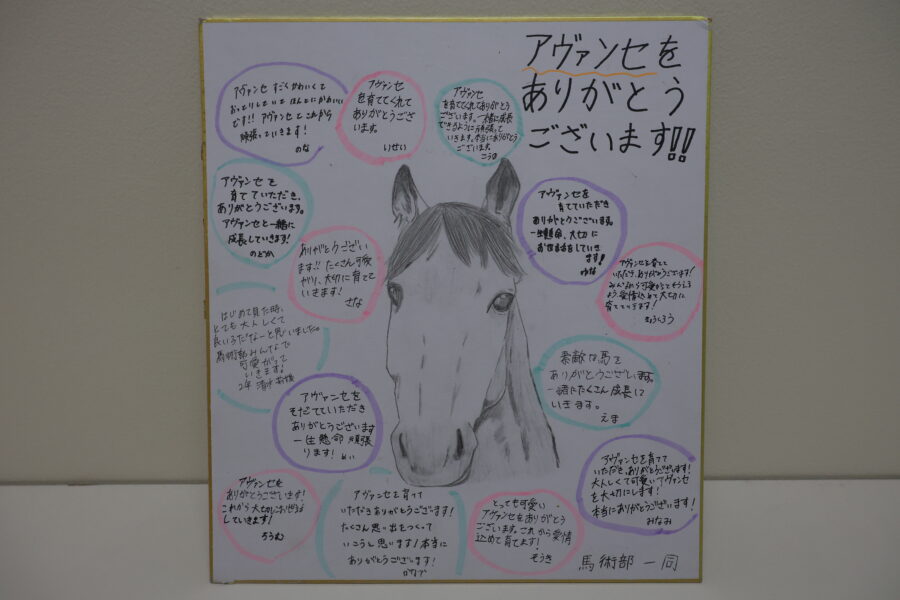 アヴァンセを
ありがとう
ございます!!
アヴァンセ すごくかわいくて
おっとりしていて ほんとにかわいい
です!! アヴァンセとこれから
頑張っていきます!
のな
アヴァンセ
を育ててくれて
ありがとうござ
います。
いせい
アヴァンセ
を育ててくれてありがとう
ございます。一緒に成長
できるように頑張って
いきます。本当にありがとう
ございます。
アヴァンセを
育てていただき、
ありがとうございます。
アヴァンセと一緒に
成長していきます!
のどか
ありがとうござい
ます!! たくさん可愛
がり、大切に育てて
いきます!
さな
アヴァンセを
育てていただき
ありがとうございます。
一生懸命、大切に
お世話をしていき
ます!
ゆな
アヴァンセを育てて
いただき、ありがとうございます!
みんなから可愛がってもらえる
よう、愛情込めて大切に
育てていきます!
はじめて見た時、
とても大人しくて
良い子だなーと思いました。
馬術部みんなで
可愛がって
いきます。
2年
素敵な馬を
ありがとうございます。
一緒にたくさん成長して
いきます。
えま
アヴァンセを
そだてていただき
ありがとうございます
一生懸命 頑張
ります!
めい
アヴァンセを育てて
いただき、ありがとうございます!
大人しくて可愛いアヴァンセ
を大切にします!
本当にありがとうございます!
みなみ
アヴァンセを
ありがとうございます!
これから大切に
していきます!
アヴァンセを育てて
いただきありがとうございます!
たくさん思い出をつくって
いこうと思います!本当に
ありがとうございます!
とっても可愛い
アヴァンセをありがとう
ございます。これから愛情
込めて育てます!
そうき
馬術部 一同